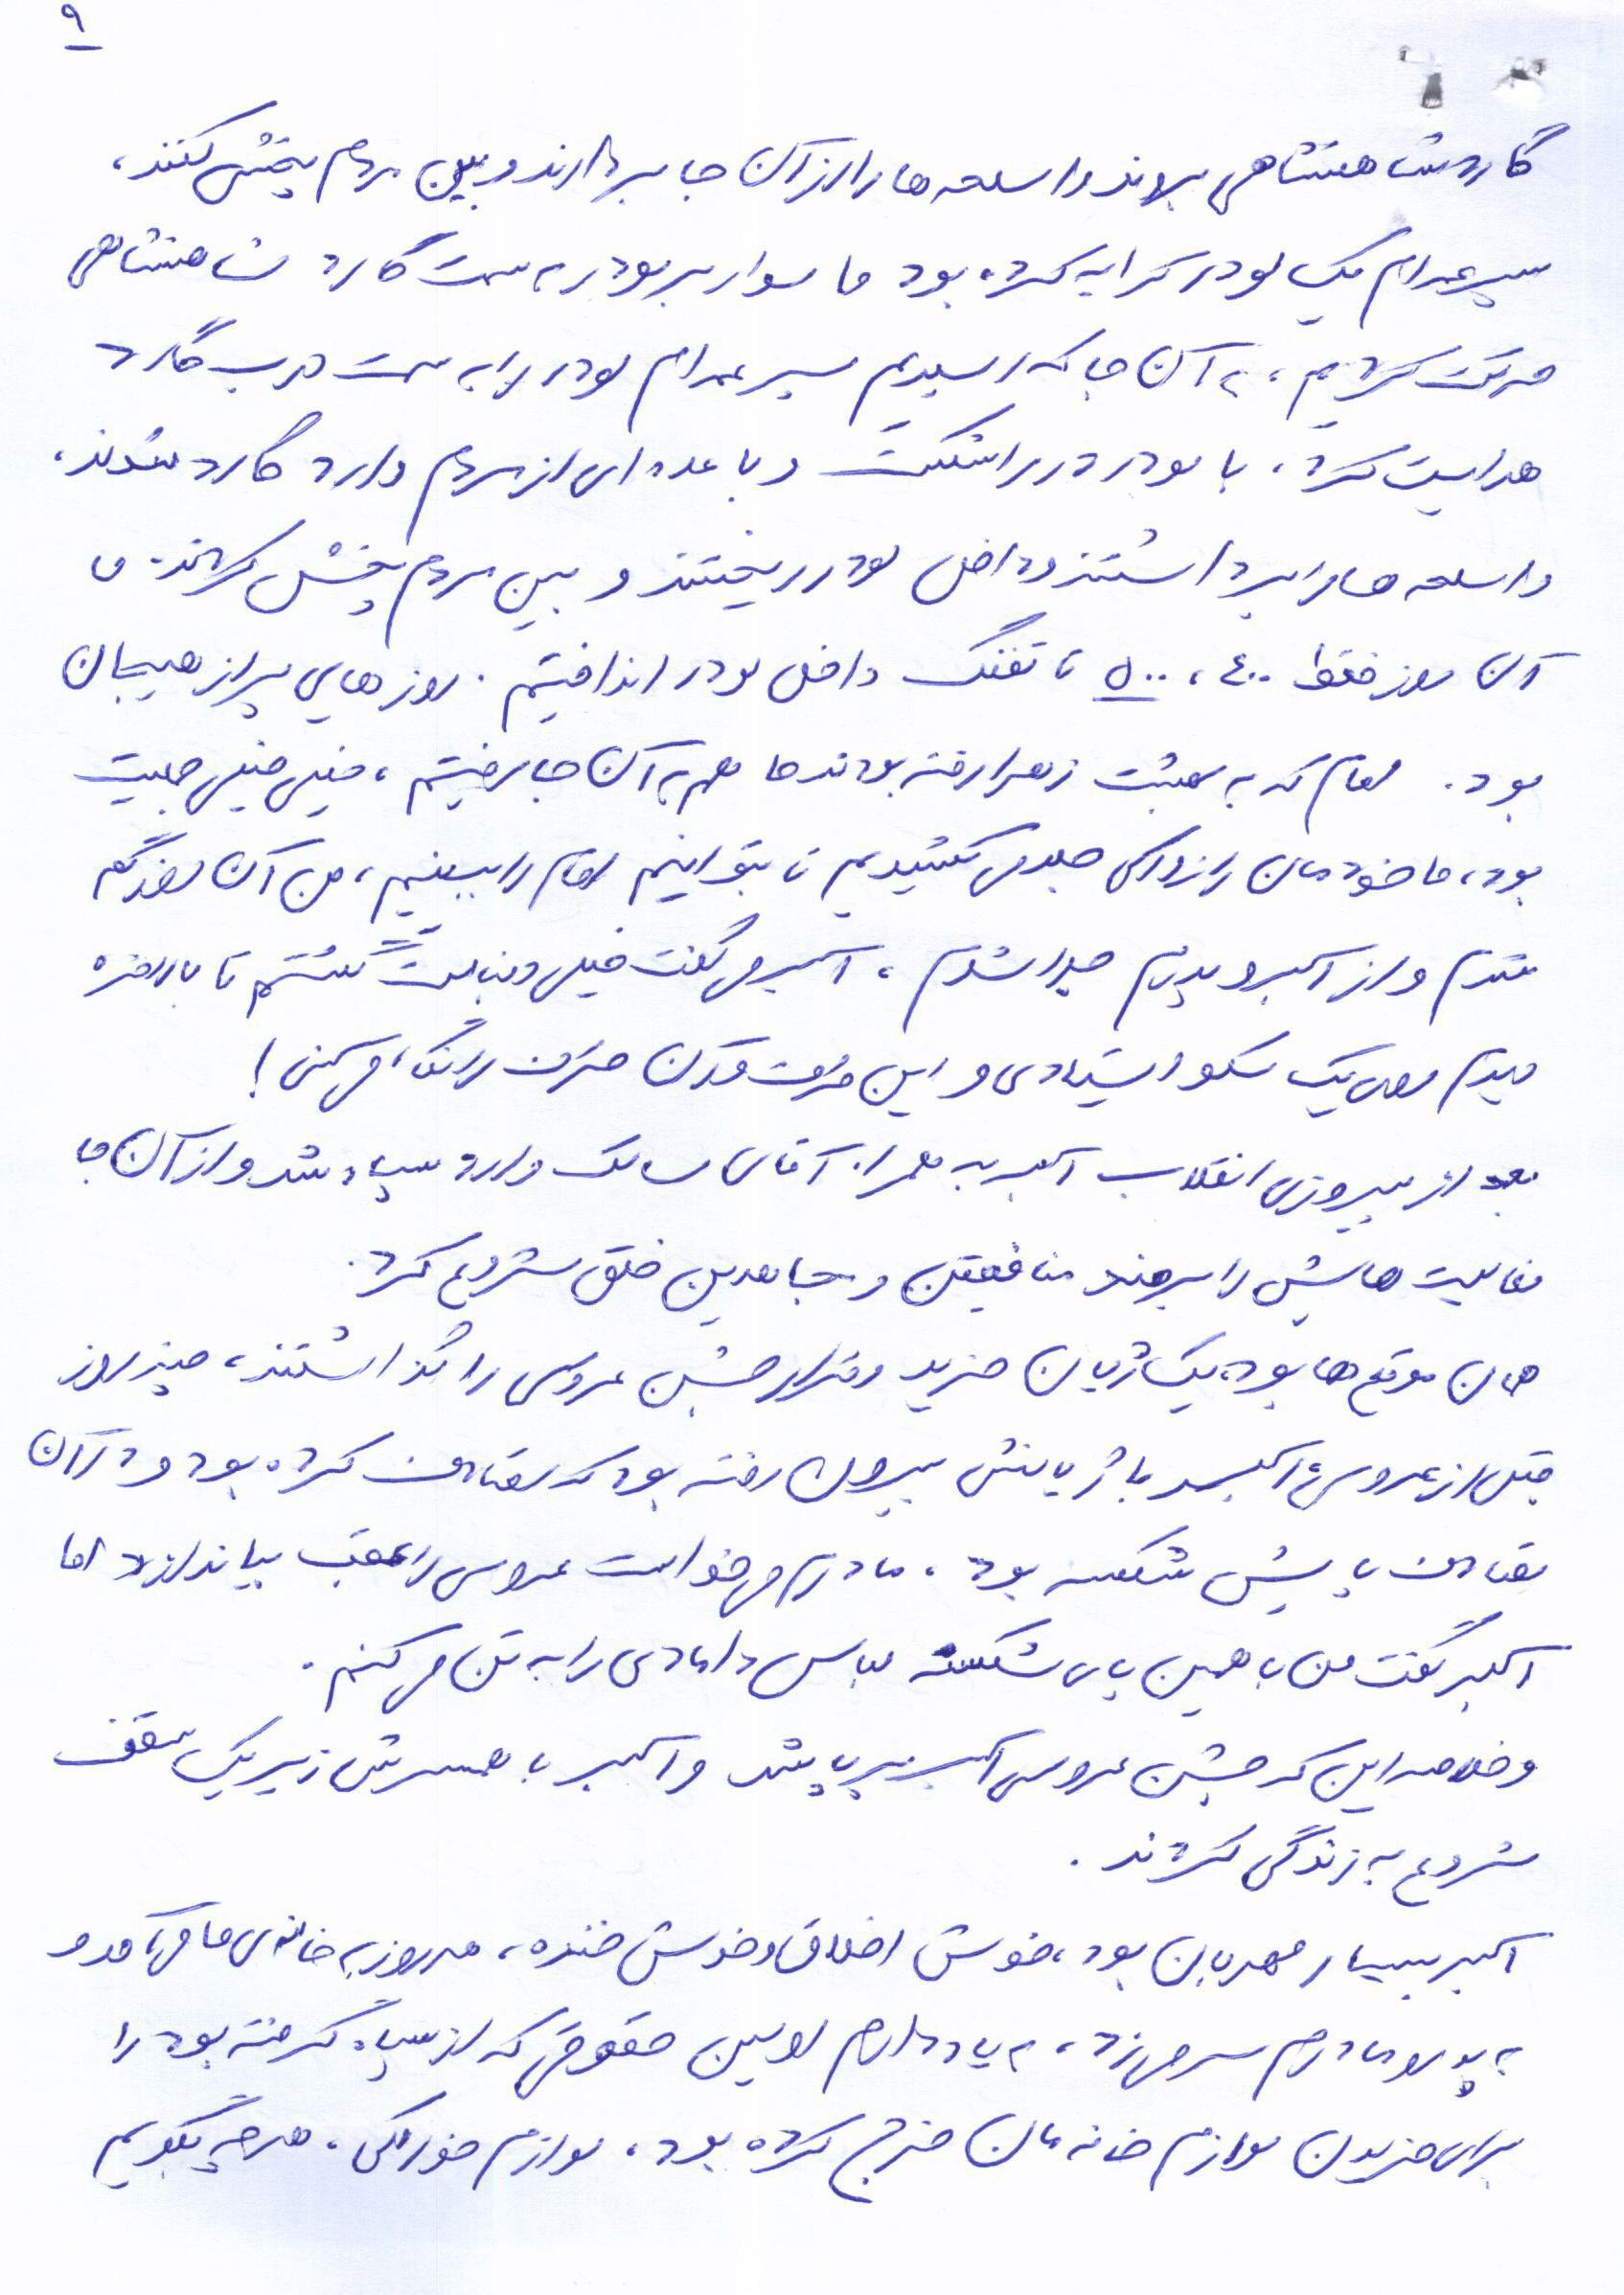 ۹
گارد شاهنشاهی بروند و اسلحه ها را از آن جا بردارند و بین مردم پخش کنند،
پسرعمه ام یک لودر کرایه کرده بود ما سوار بر لودر به سمت گارد شاهنشاهی
حرکت کردیم، به آن جا که رسیدیم پسرعمه ام لودر را به سمت درب گارد
هدایت کرد، با لودر در را شکست و با عده ای از مردم وارد گارد شدند،
و اسلحه ها را برداشتند و داخل لودر ریختند و بین مردم پخش کردند. ما
آن روز فقط ۴۰۰، ۵۰۰ تا تفنگ داخل لودر انداختیم. روزهای پر از هیجان
بود. امام که به بهشت زهرا رفته بودند ما هم به آن جا رفتیم، خیلی خیلی جمعیت
بود، ما خودمان را زورکی جلو می کشیدیم تا بتوانیم امام را ببینیم، من آن روز گم
شدم و از اکبر و پدرم جدا شدم، اکبر می گفت خیلی دنبالت گشتم تا بالاخره
دیدم روی یک سکو ایستادی و این طرف و آن طرف را نگاه می کنی!
بعد از پیروزی انقلاب اکبر به همراه آقای سالک وارد سپاه شد و از آن جا
فعالیت هایش را بر ضد منافقین و مجاهدین خلق شروع کرد.
همان موقع ها بود، یک ژیان خرید و قرار جشن عروسی را گذاشتند، چند روز
قبل از عروسی اکبر با ژیانش بیرون رفته بود که تصادف کرده بود و در آن
تصادف پایش شکسته بود. مادرم می خواست عروسی را عقب بیاندازد اما
اکبر گفت من با همین پای شکسته لباس دامادی را به تن می کنم.
و خلاصه این که جشن عروسی اکبر برپا شد و اکبر با همسرش زیر یک سقف
شروع به زندگی کردند.
اکبر بسیار مهربان بود، خوش اخلاق و خوش خنده، هر روز به خانه ی ما می آمد و
به پدر و مادرم سر می زد، به یاد دارم اولین حقوقی که از سپاه گرفته بود را
برای خریدن لوازم خانه مان خرج کرده بود، لوازم خوراکی، هر چه بگویم